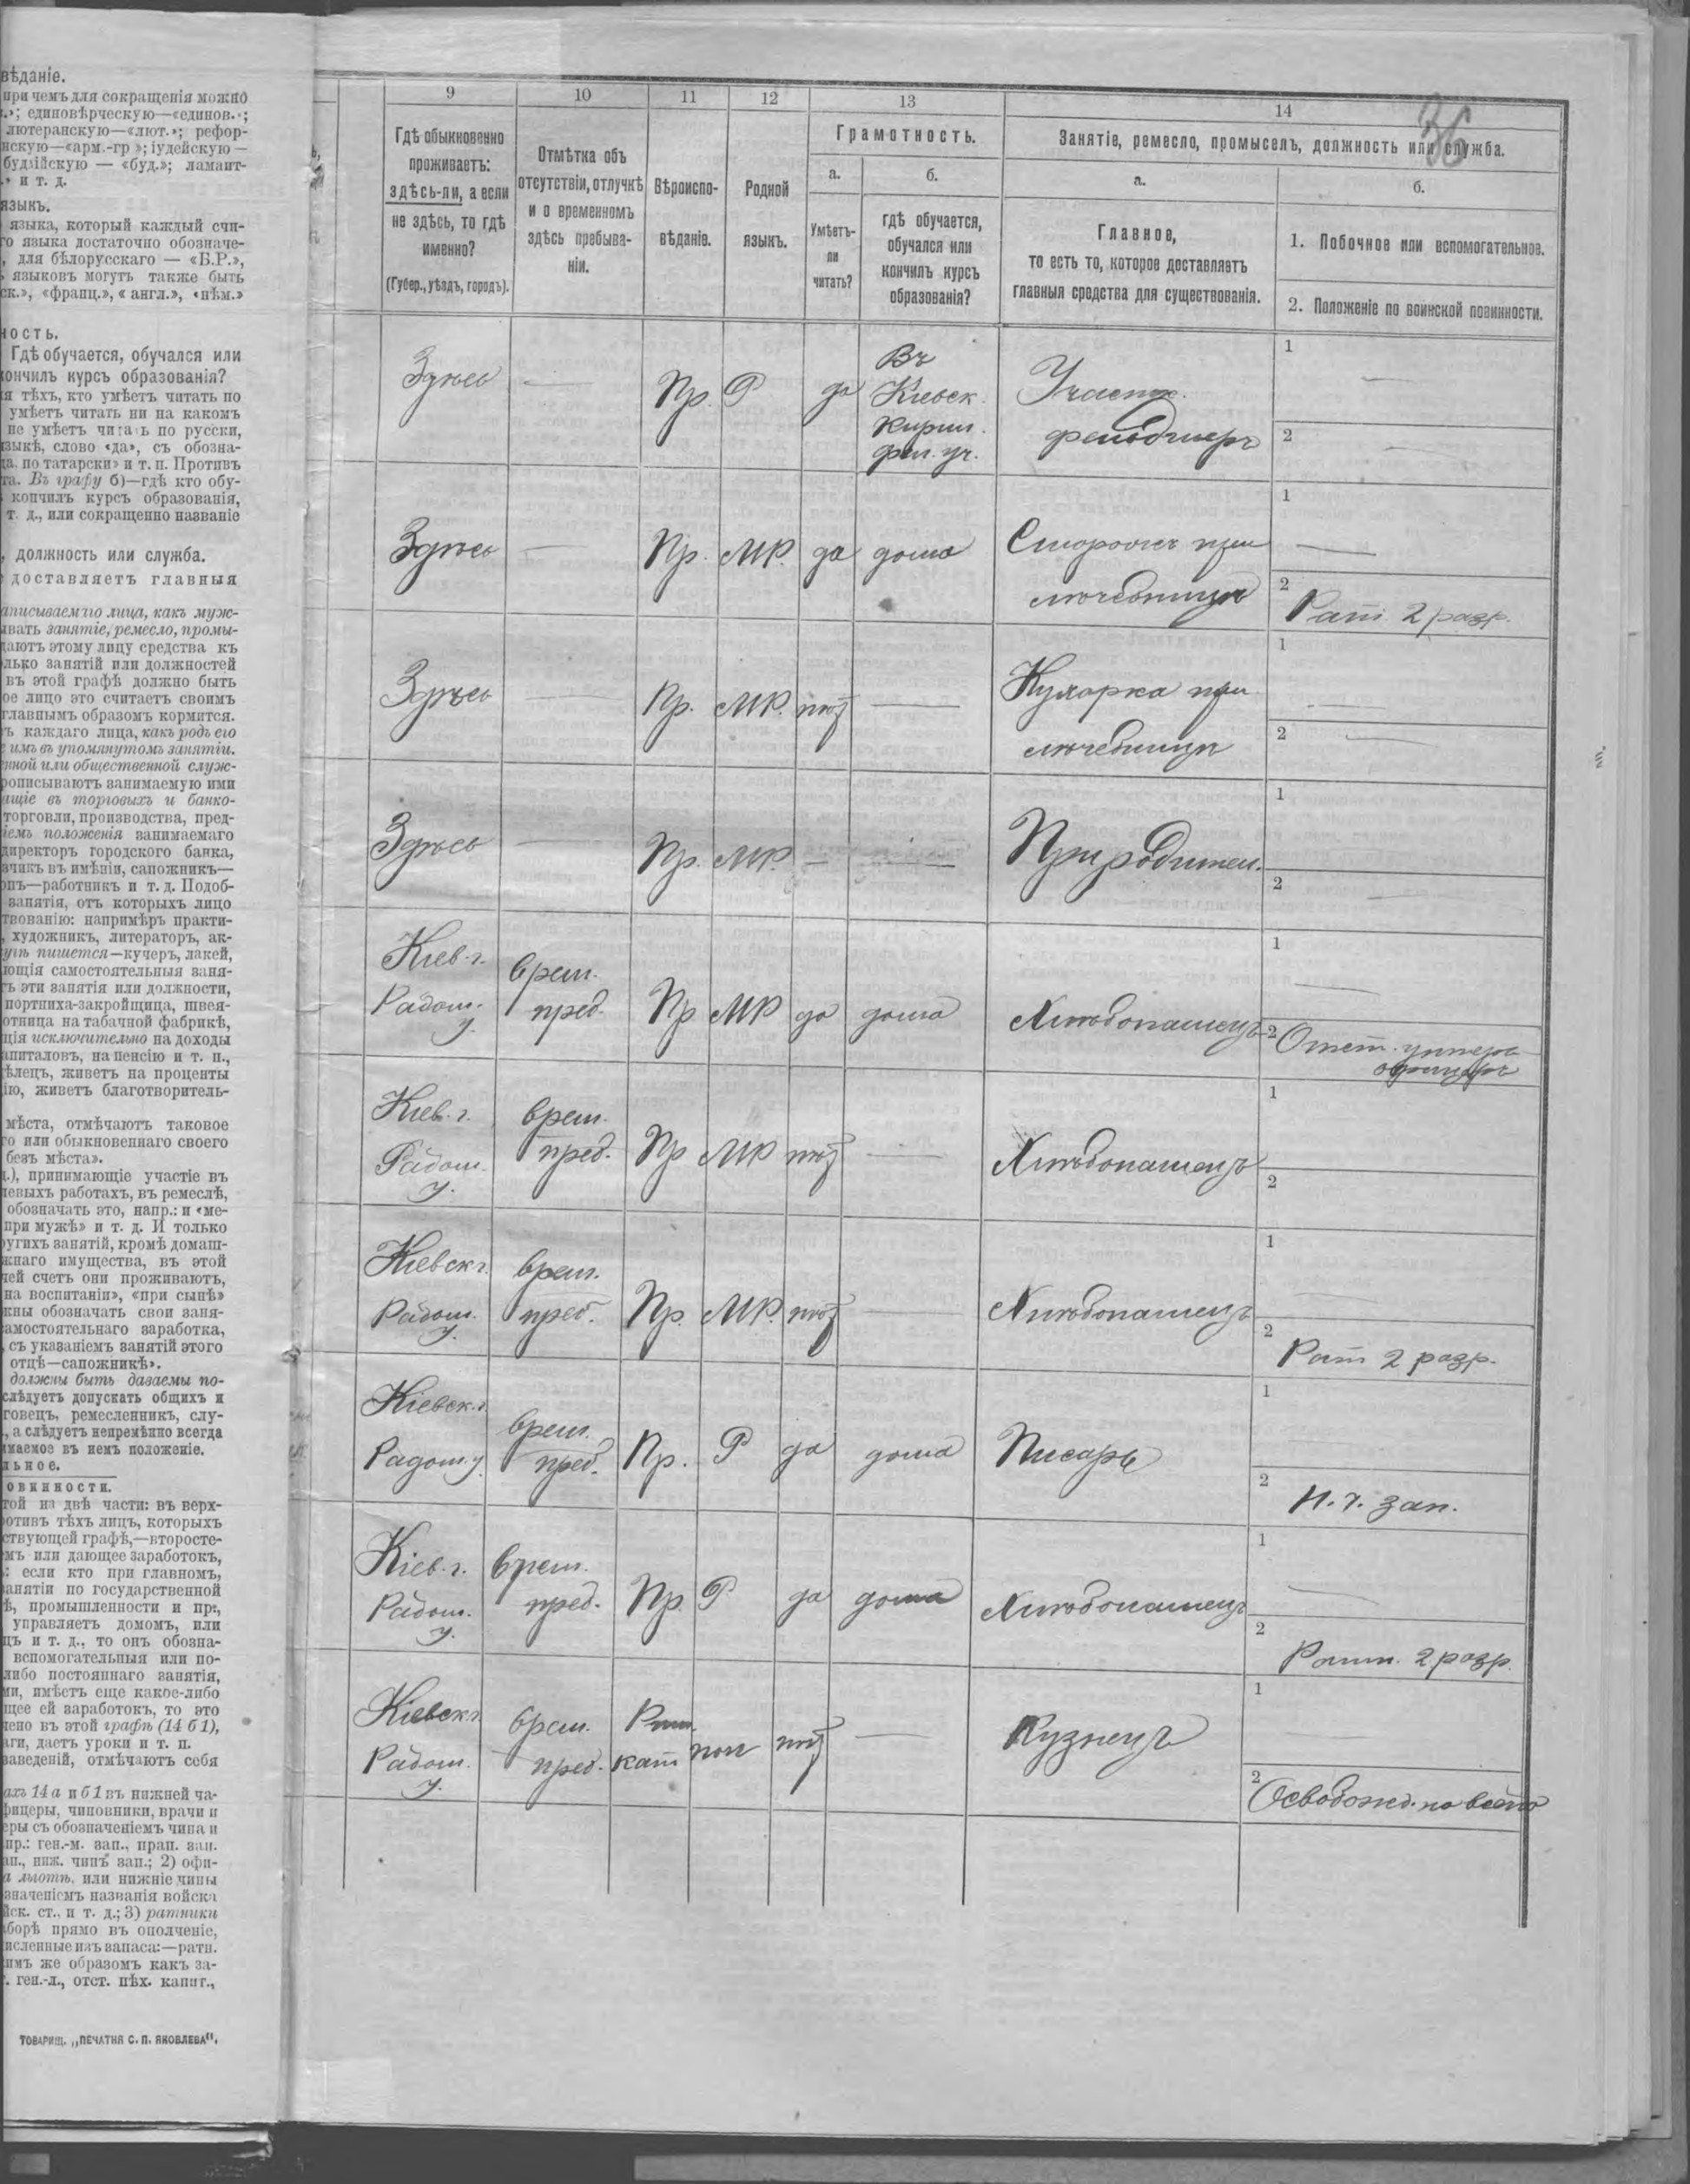 вѣданіе.
при чемъ для сокращенія можно
.»; единовѣрческую—«единов.»;
лютеранскую—«лют.»; рефор-
нскую—«арм.-гр.»; іудейскую —
буддійскую — «буд.»; ламаит-
.» и т. д.
языкъ.
языка, который каждый счи-
го языка достаточно обозначе-
, для бѣлорусскаго — «Б.Р.»,
языковъ могутъ также быть
ск.», «франц.», «англ.», «нѣм.»
ность.
Гдѣ обучается, обучался или
кончилъ курсъ образованія?
я тѣхъ, кто умѣетъ читать по
умѣетъ читать ни на какомъ
не умѣетъ читать по русски,
языкѣ, слово «да», съ обозна-
да по татарски» и т. п. Противъ
та. Въ графу б)—гдѣ кто обу-
кончилъ курсъ образованія,
т. д., или сокращенно названіе
, должность или служба.
доставляетъ главныя
аписываемаго лица, какъ муж-
ивать занятіе, ремесло, промы-
даютъ этому лицу средства къ
лько занятій или должностей
въ этой графѣ должно быть
ое лицо это считаетъ своимъ
главнымъ образомъ кормится.
ъ каждаго лица, какъ родъ его
имъ въ упомянутомъ занятіи.
нной или общественной служ-
рописываютъ занимаемую ими
ащіе въ торговыхъ и банко-
торговли, производства, пред-
іемъ положенія занимаемаго
директоръ городского банка,
зчикъ въ имѣніи, сапожникъ—
онъ—работникъ и т. д. Подоб-
занятія, отъ которыхъ лицо
твованію: напримѣръ практи-
, художникъ, литераторъ, ак-
угъ пишется—кучеръ, лакей,
ющія самостоятельныя заня-
ъ эти занятія или должности,
портниха-закройщица, швея-
отница на табачной фабрикѣ,
ція исключительно на доходы
апиталовъ, на пенсію и т. п.,
ѣлецъ, живетъ на проценты
ію, живетъ благотворитель-
мѣста, отмѣчаютъ таковое
го или обыкновеннаго своего
безъ мѣста».
д.), принимающіе участіе въ
левыхъ работахъ, въ ремеслѣ,
обозначать это, напр.: и «ме-
при мужѣ» и т. д. И только
ругихъ занятій, кромѣ домаш-
жнаго имущества, въ этой
чей счетъ они проживаютъ,
на воспитаніи», «при сынѣ»
жны обозначать свои заня-
амостоятельнаго заработка,
, съ указаніемъ занятій этого
отцѣ—сапожникѣ».
должны быть даваемы по-
слѣдуетъ допускать общихъ и
говецъ, ремесленникъ, слу-
., а слѣдуетъ непремѣнно всегда
имаемое въ немъ положеніе.
льное.
овинности.
той на двѣ части: въ верх-
отивъ тѣхъ лицъ, которыхъ
ствующей графѣ,—второсте-
мъ или дающее заработокъ,
: если кто при главномъ,
занятіи по государственной
ѣ, промышленности и пр.,
управляетъ домомъ, или
цъ и т. д., то онъ обозна-
вспомогательныя или по-
либо постояннаго занятія,
ми, имѣетъ еще какое-либо
щее ей заработокъ, то это
чено въ этой графѣ (14 б 1),
аги, даетъ уроки и т. п.
заведеній, отмѣчаютъ себя
ахъ 14 а и б 1 въ нижней ча-
фицеры, чиновники, врачи и
еры съ обозначеніемъ чина и
пр.: ген.-м. зап., прап. зап.
ап., ниж. чинъ зап.; 2) офи-
а льготѣ, или нижніе чины
значеніемъ названія войска
йск. ст., и т. д.; 3) ратники
борѣ прямо въ ополченіе,
исленные изъ запаса:—ратн.
имъ же образомъ какъ за-
. ген.-л., отст. пѣх. капит.,
ТОВАРИЩ. „ПЕЧАТНЯ С. П. ЯКОВЛЕВА“.
36
9 10 11 12 13 14
Гдѣ обыкновенно
проживаетъ:
здѣсь-ли, а если
не здѣсь, то гдѣ
именно?
(Губер., уѣздъ, городъ).
Отмѣтка объ
отсутствіи, отлучкѣ
и о временномъ
здѣсь пребыва-
ніи.
Вѣроиспо-
вѣданіе.
Родной
языкъ.
Грамотность.
а.
Умѣетъ-
ли
читать?
б.
гдѣ обучается,
обучался или
кончилъ курсъ
образованія?
Занятіе, ремесло, промыселъ, должность или служба.
а.
Главное,
то есть то, которое доставляетъ
главныя средства для существованія.
б.
1. Побочное или вспомогательное.
2. Положеніе по воинской повинности.
Здѣсь — Пр. Р да
Въ
Кіевск.
Кирил.
фел. уч.
Участк.
фельдшеръ
1 —
2 —
Здѣсь — Пр. МР. да дома
Сторожъ при
лѣчебницѣ
1 —
2 Рат. 2 разр.
Здѣсь — Пр. МР. нѣт —
Кухарка при
лѣчебницѣ
1 —
2 —
Здѣсь — Пр. МР. — —
При родител.
1
2 —
Кіев. г.
Радом.
у.
врем.
преб.
Пр МР да дома
Хлѣбопашецъ
1 —
2 Отст. унтеръ
офицеръ
Кіев. г.
Радом.
у.
врем.
преб.
Пр МР нѣт —
Хлѣбопашецъ
1
2
Кіевск г.
Радом.
у.
врем.
преб.
Пр. МР. нѣт —
Хлѣбопашецъ
1 —
2 Рат 2 разр.
Кіевск. г.
Радом. у.
врем.
преб.
Пр. Р да дома
Писарь
1 —
2 Н. ч. зап.
Кіев. г.
Радом.
у.
врем.
преб.
Пр. Р да дома
Хлѣбопашецъ
1 —
2 Ратн. 2 разр.
Кіевск г.
Радом.
у.
врем.
преб.
Рим.
кат
пол нѣт —
Кузнецъ
1 —
2 Освобожд. по